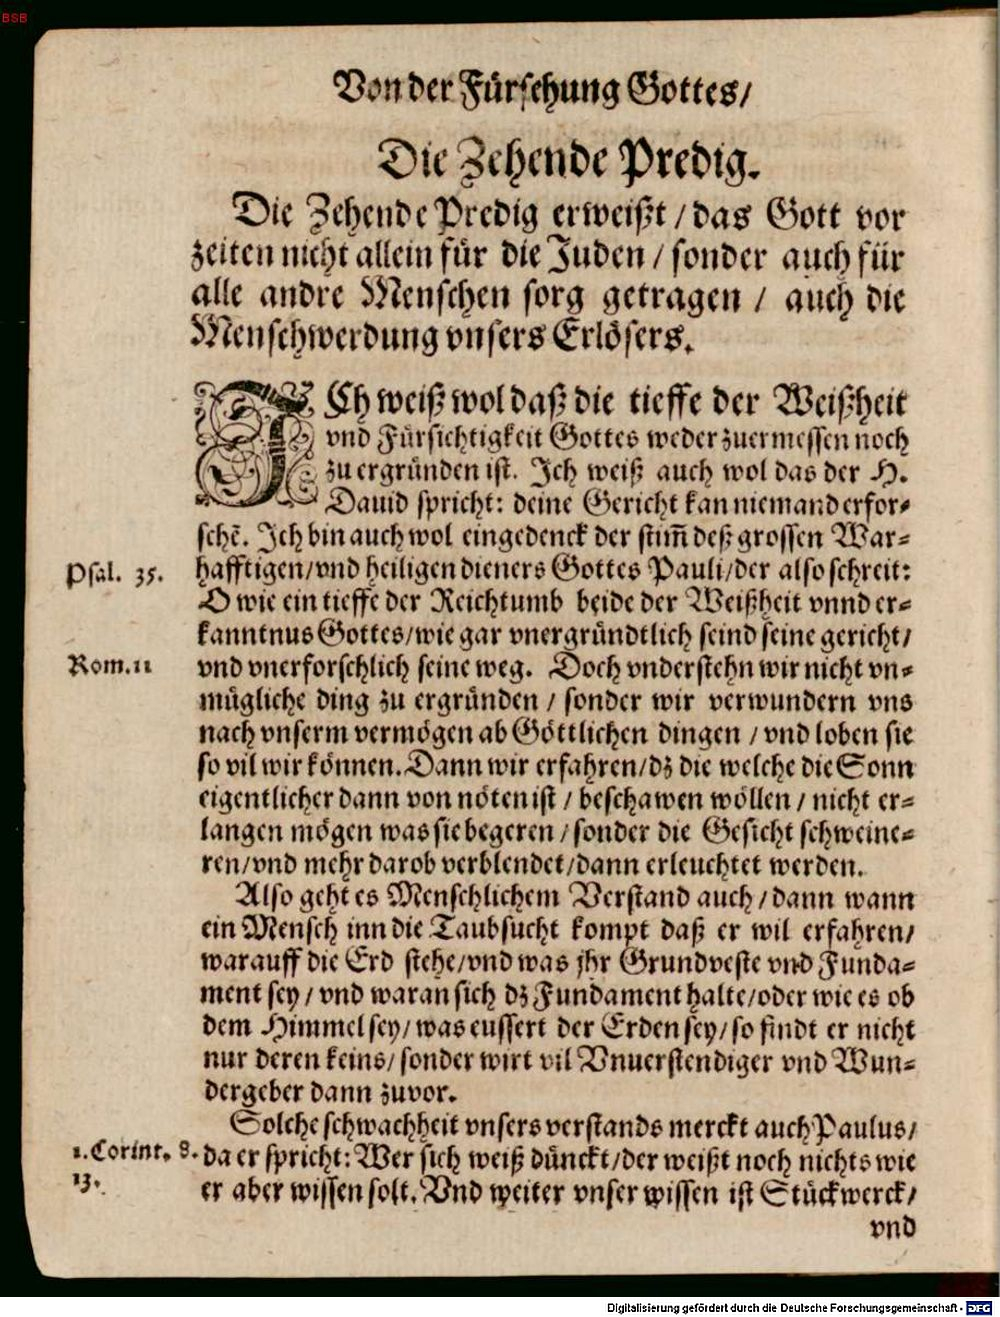 BSB
Von der Fürsehung Gottes/
Die Zehende Predig.
Die Zehende Predig erweißt / das Gott vor
zeiten nicht allein für die Juden / sonder auch für
alle andre Menschen sorg getragen / auch die
Menschwerdung vnsers Erlösers.
ICh weiß wol daß die tieffe der Weißheit
vnd Fürsichtigkeit Gottes weder zuermessen noch
zu ergründen ist. Ich weiß auch wol das der H.
Dauid spricht: deine Gericht kan niemand erfor-
schẽ. Ich bin auch wol eingedenck der stim̃ deß grossen War-
Psal. 35. hafftigen/vnd heiligen dieners Gottes Pauli/der also schreit:
O wie ein tieffe der Reichtumb beide der Weißheit vnnd er-
kanntnus Gottes/wie gar vnergründtlich seind seine gericht/
Rom. 11 vnd vnerforschlich seine weg. Doch vnderstehn wir nicht vn-
mügliche ding zu ergründen / sonder wir verwundern vns
nach vnserm vermögen ab Göttlichen dingen / vnd loben sie
so vil wir können. Dann wir erfahren/dz die welche die Sonn
eigentlicher dann von nöten ist / beschawen wöllen / nicht er-
langen mögen was sie begeren / sonder die Gesicht schweine-
ren/vnd mehr darob verblendet/dann erleuchtet werden.
Also geht es Menschlichem Verstand auch / dann wann
ein Mensch inn die Taubsucht kompt daß er wil erfahren/
warauff die Erd stehe/vnd was jhr Grundveste vnd Funda-
ment sey / vnd waran sich dz Fundament halte/oder wie es ob
dem Himmel sey/was eussert der Erden sey/so findt er nicht
nur deren keins/sonder wirt vil Vnuerstendiger vnd Wun-
dergeber dann zuvor.
Solche schwachheit vnsers verstands merckt auch Paulus/
1. Corint. 8. da er spricht: Wer sich weiß dünckt/der weißt noch nichts wie
13. er aber wissen solt. Vnd weiter vnser wissen ist Stückwerck/
vnd
Digitalisierung gefördert durch die Deutsche Forschungsgemeinschaft - DFG